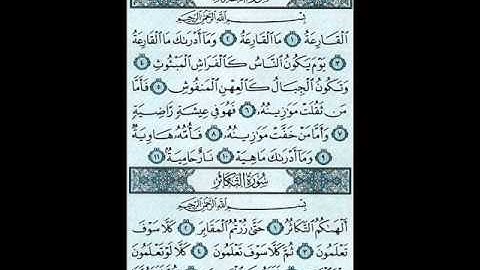 بِسْمِ اللَّهِ الرَّحْمَٰنِ الرَّحِيمِ
الْقَارِعَةُ ١ مَا الْقَارِعَةُ ٢ وَمَا أَدْرَىٰكَ مَا الْقَارِعَةُ
٣ يَوْمَ يَكُونُ النَّاسُ كَالْفَرَاشِ الْمَبْثُوثِ ٤
وَتَكُونُ الْجِبَالُ كَالْعِهْنِ الْمَنْفُوشِ ٥ فَأَمَّا
مَنْ ثَقُلَتْ مَوَٰزِينُهُ ٦ فَهُوَ فِي عِيشَةٍ رَاضِيَةٍ
٧ وَأَمَّا مَنْ خَفَّتْ مَوَٰزِينُهُ ٨ فَأُمُّهُ هَاوِيَةٌ
٩ وَمَا أَدْرَىٰكَ مَا هِيَهْ ١٠ نَارٌ حَامِيَةٌ ١١
سُورَةُ التَّكَاثُرِ
بِسْمِ اللَّهِ الرَّحْمَٰنِ الرَّحِيمِ
أَلْهَىٰكُمُ التَّكَاثُرُ ١ حَتَّىٰ زُرْتُمُ الْمَقَابِرَ ٢ كَلَّا سَوْفَ
تَعْلَمُونَ ٣ ثُمَّ كَلَّا سَوْفَ تَعْلَمُونَ ٤ كَلَّا لَوْ تَعْلَمُونَ